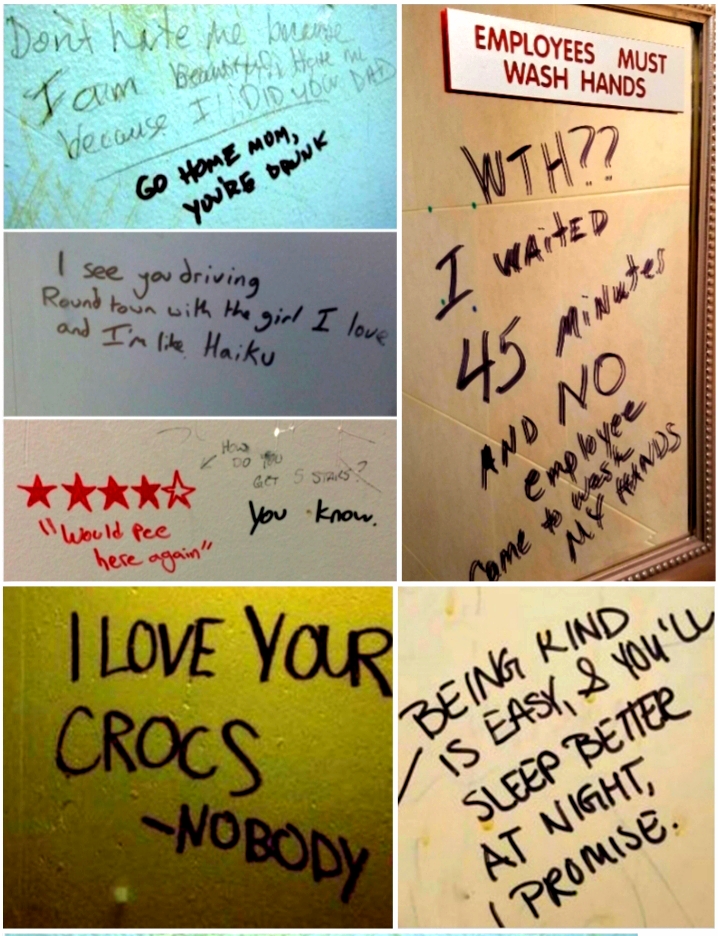 Don't hate me because
I am beautiful, Hate me
because I DID your DAD
GO HOME MOM,
YOU'RE DRUNK
I see you driving
Round town with the girl I love
and I'm like Haiku
HOW
DO YOU
GET 5 STARS?
You know.
"Would Pee
here again"
EMPLOYEES MUST
WASH HANDS
WTH??
I WAITED
45 MiNutes
AND NO
employee
Came to wash
MY HANDS
I LOVE YOUR
CROCS
-NOBODY
BEING KIND
IS EASY, & YOU'LL
SLEEP BETTER
AT NIGHT,
I PROMISE.